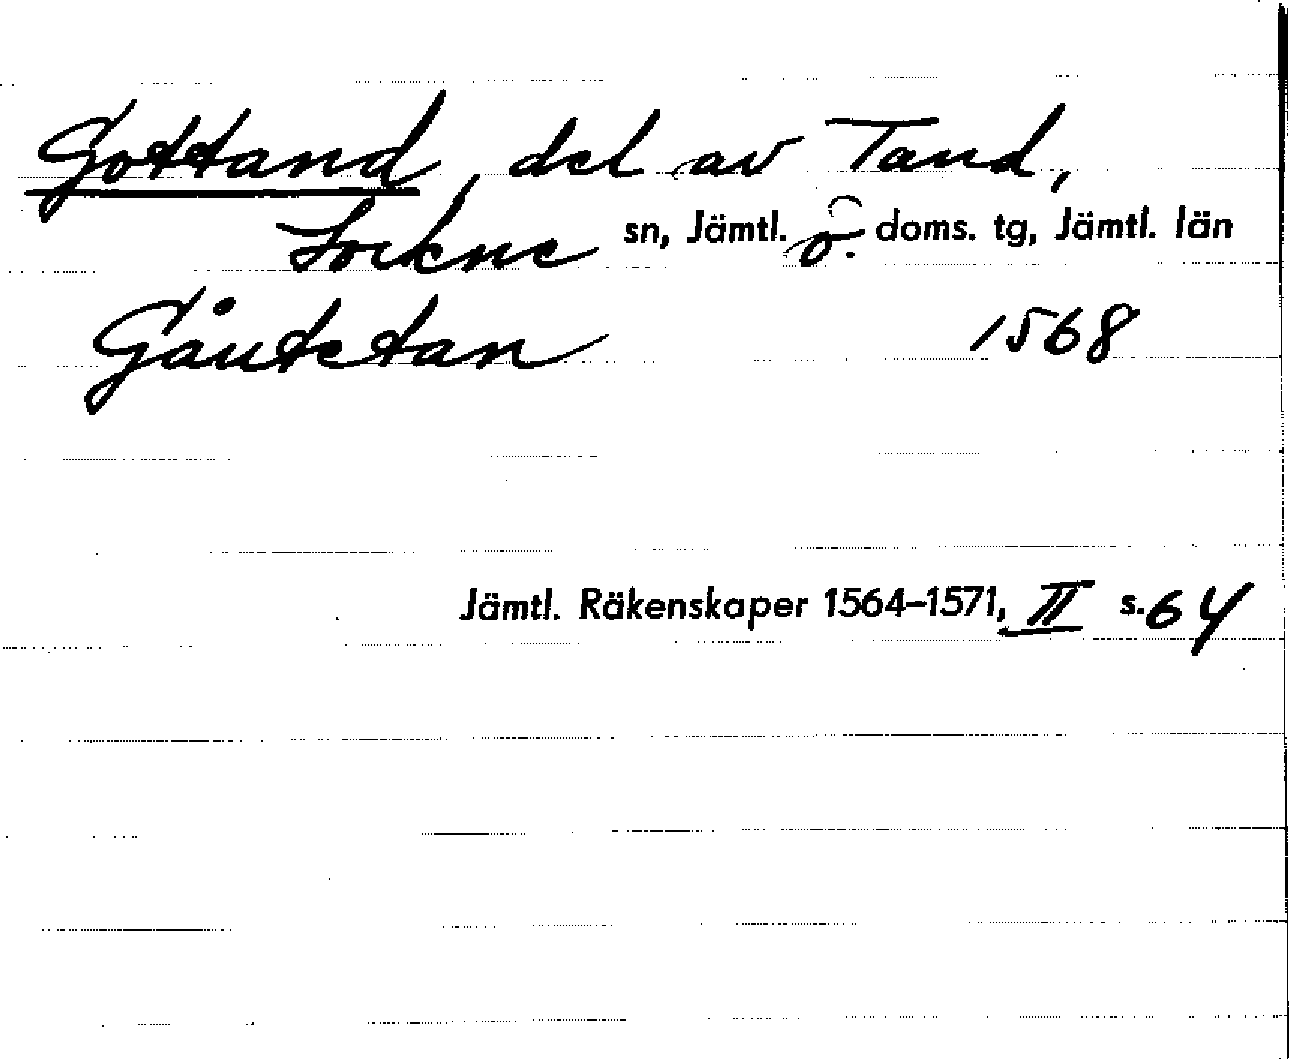 Gottand, del av Tand,
Lockne sn, Jämtl. ö. doms. tg, Jämtl. län
Gåutetan 1568
Jämtl. Räkenskaper 1564-1571, II s. 64